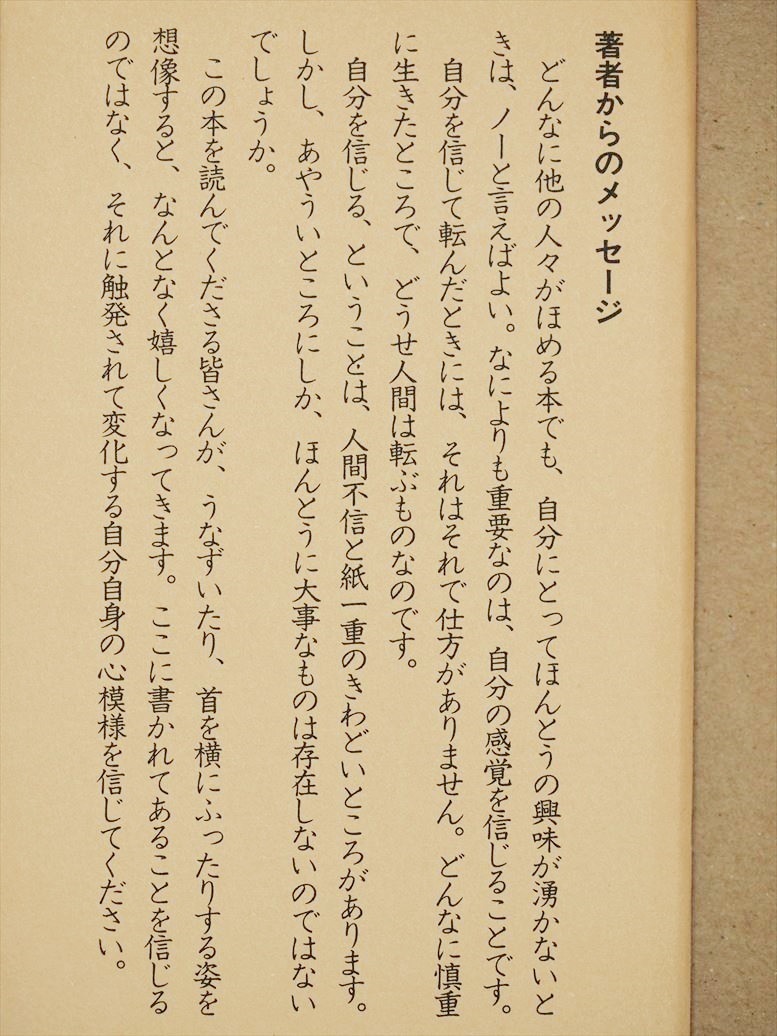 著者からのメッセージ
どんなに他の人々がほめる本でも、自分にとってほんとうの興味が湧かないと
きは、ノーと言えばよい。なによりも重要なのは、自分の感覚を信じることです。
自分を信じて転んだときには、それはそれで仕方がありません。どんなに慎重
に生きたところで、どうせ人間は転ぶものなのです。
自分を信じる、ということは、人間不信と紙一重のきわどいところがあります。
しかし、あやういところにしか、ほんとうに大事なものは存在しないのではない
でしょうか。
この本を読んでくださる皆さんが、うなずいたり、首を横にふったりする姿を
想像すると、なんとなく嬉しくなってきます。ここに書かれてあることを信じる
のではなく、それに触発されて変化する自分自身の心模様を信じてください。